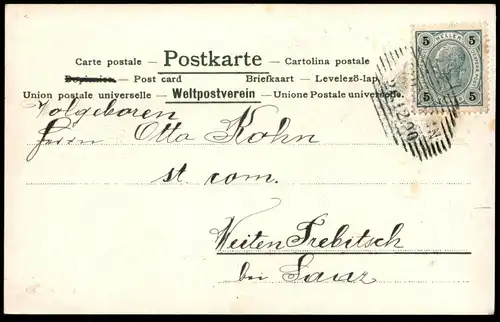 Carte postale — Postkarte — Cartolina postale
— Post card Briefkaart — Levelező-lap
Union postale universelle — Weltpostverein — Unione Postale universelle.
5 HELLER 5
5 5
Wolgeboren
Herrn Otto Kohn
st com.
Weiten Trebitsch
bei Saaz